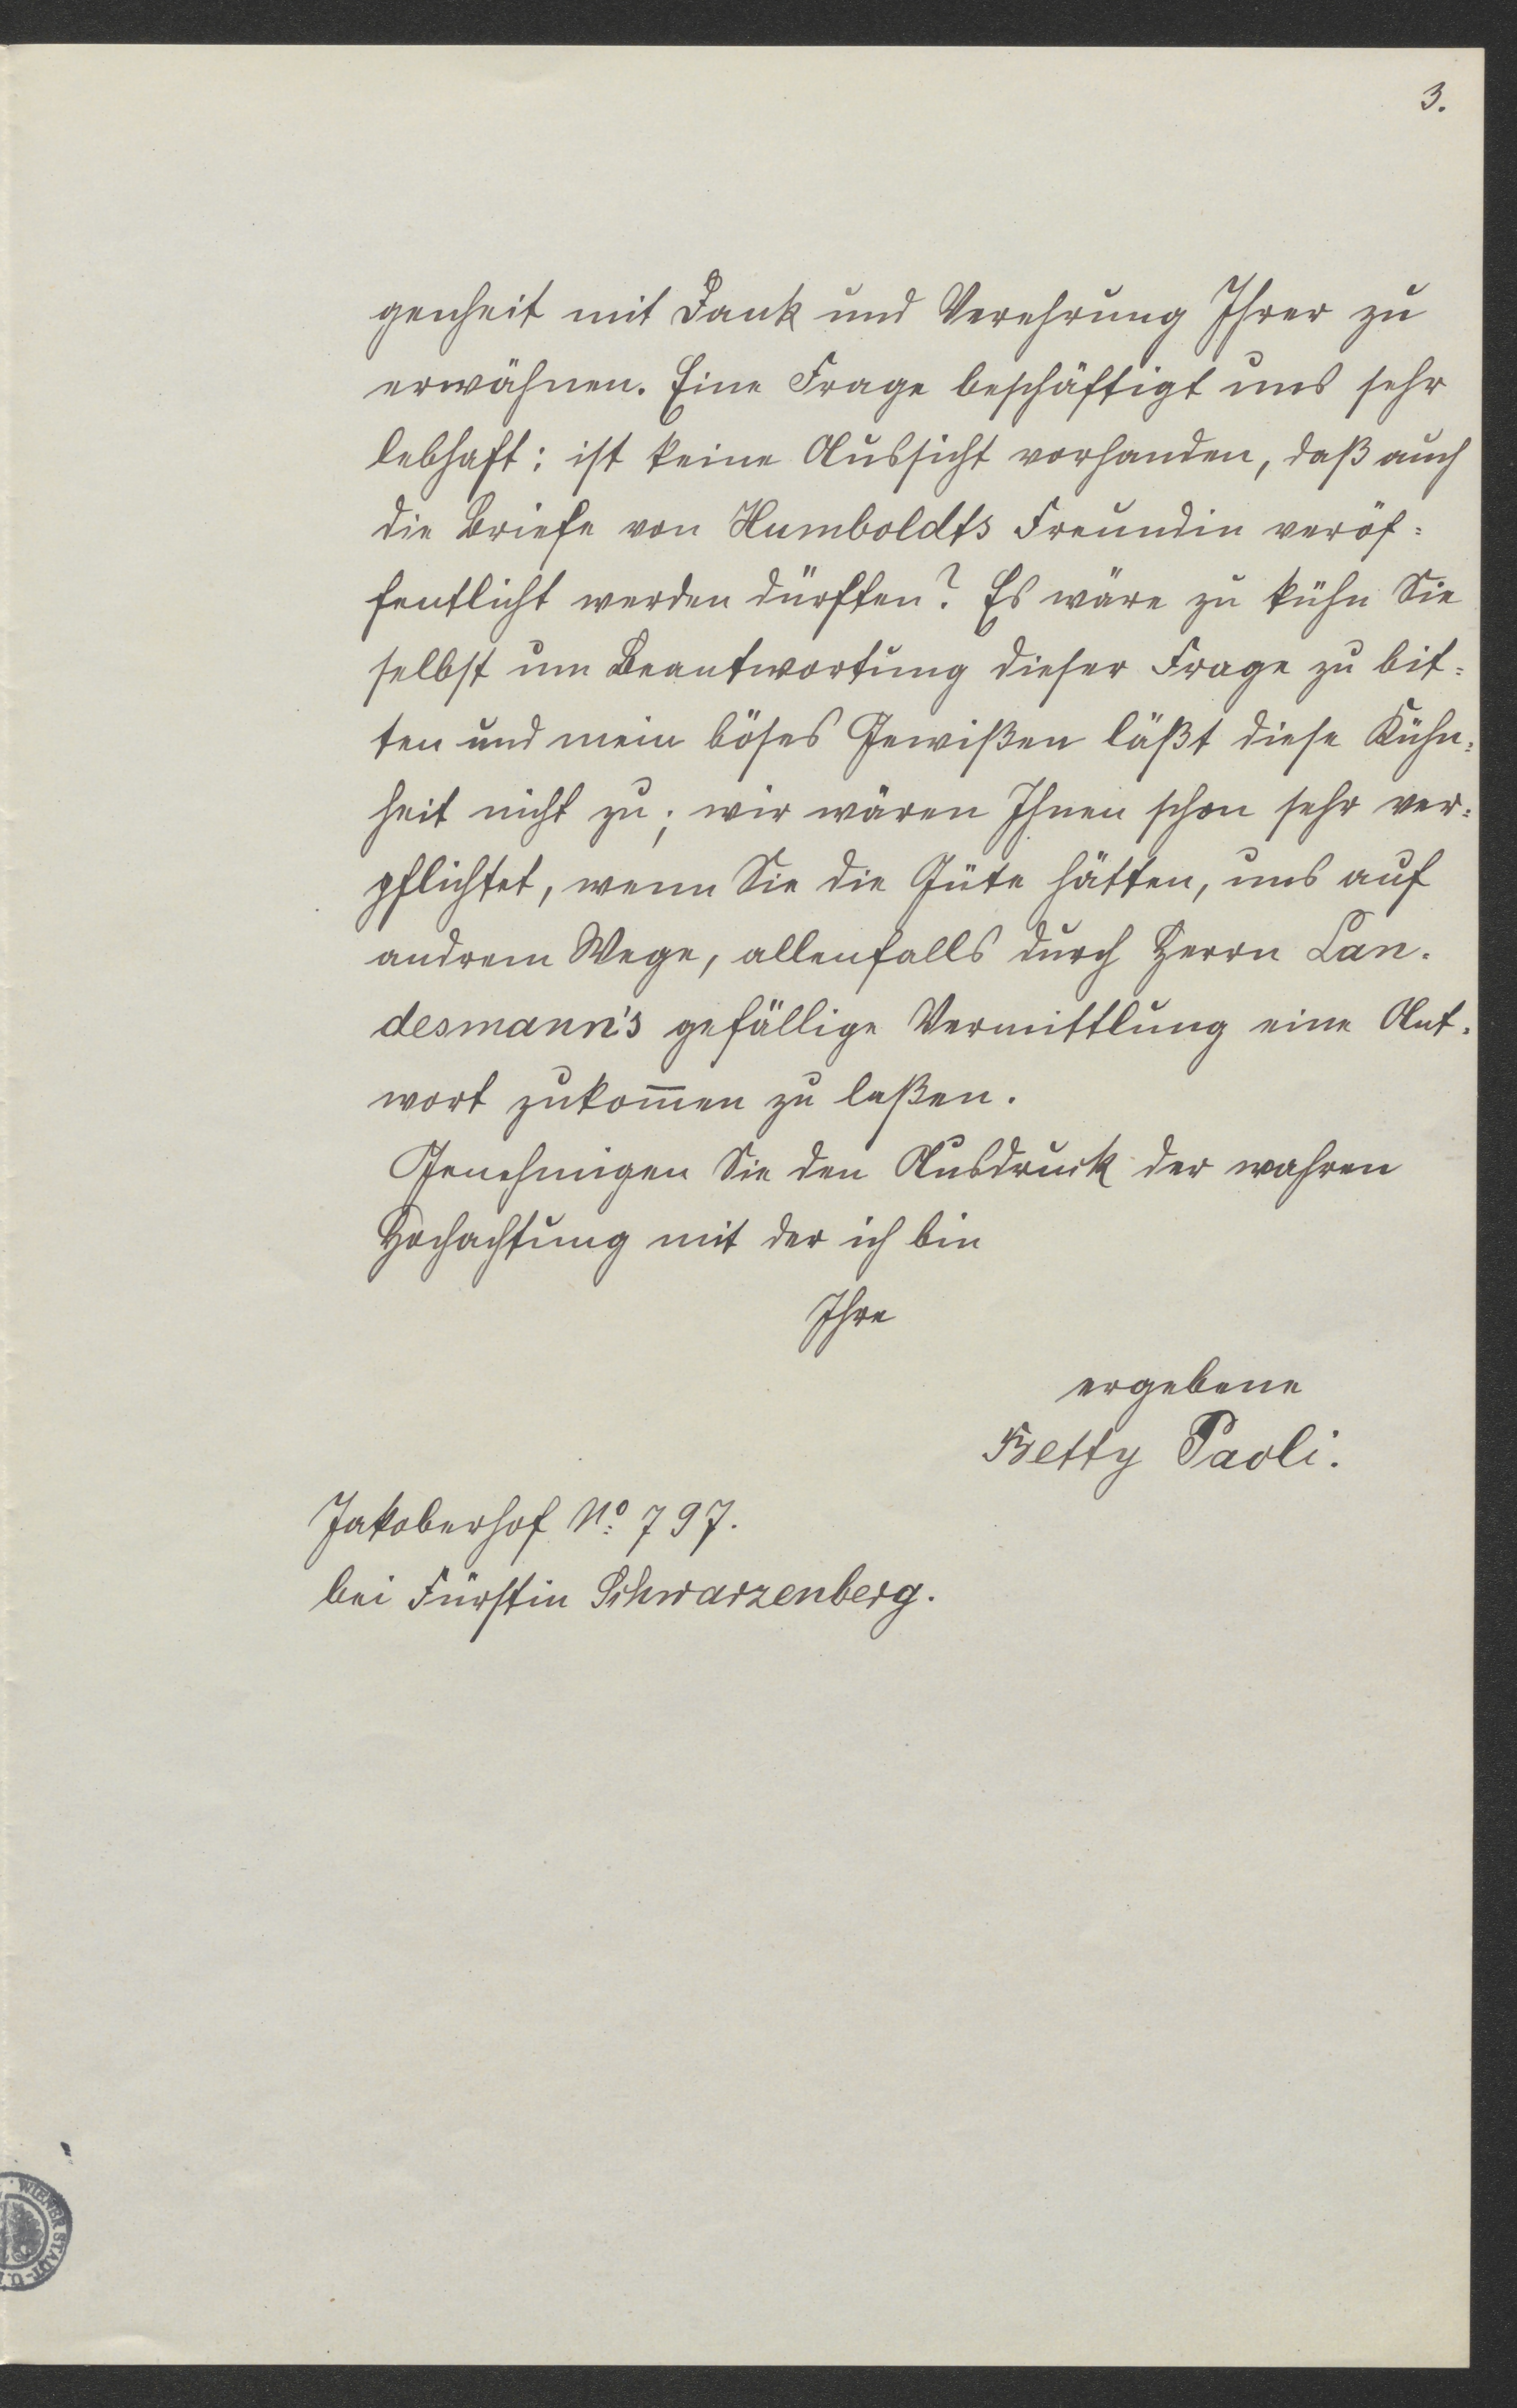 3.
genheit mit Dank und Verehrung Ihrer zu
erwähnen. Eine Frage beschäftigt uns sehr
lebhaft: ist keine Aussicht vorhanden, daß auch
die Briefe von Humboldts Freundin veröf=
fentlicht werden dürften? Es wäre zu kühn Sie
selbst um Beantwortung dieser Frage zu bit=
ten und mein böses Gewißen läßt diese Kühn=
heit nicht zu; wir wären Ihnen schon sehr ver=
pflichtet, wenn Sie die Güte hätten, uns auf
andrem Wege, allenfalls durch Herrn Lan=
desmann's gefällige Vermittlung eine Ant=
wort zukom̅en zu laßen.
Genehmigen Sie den Ausdruck der wahren
Hochachtung mit der ich bin
Ihre
ergebene
Betty Paoli.
Jakoberhof No: 797.
bei Fürstin Schwarzenberg.
WIENER STADT-U.